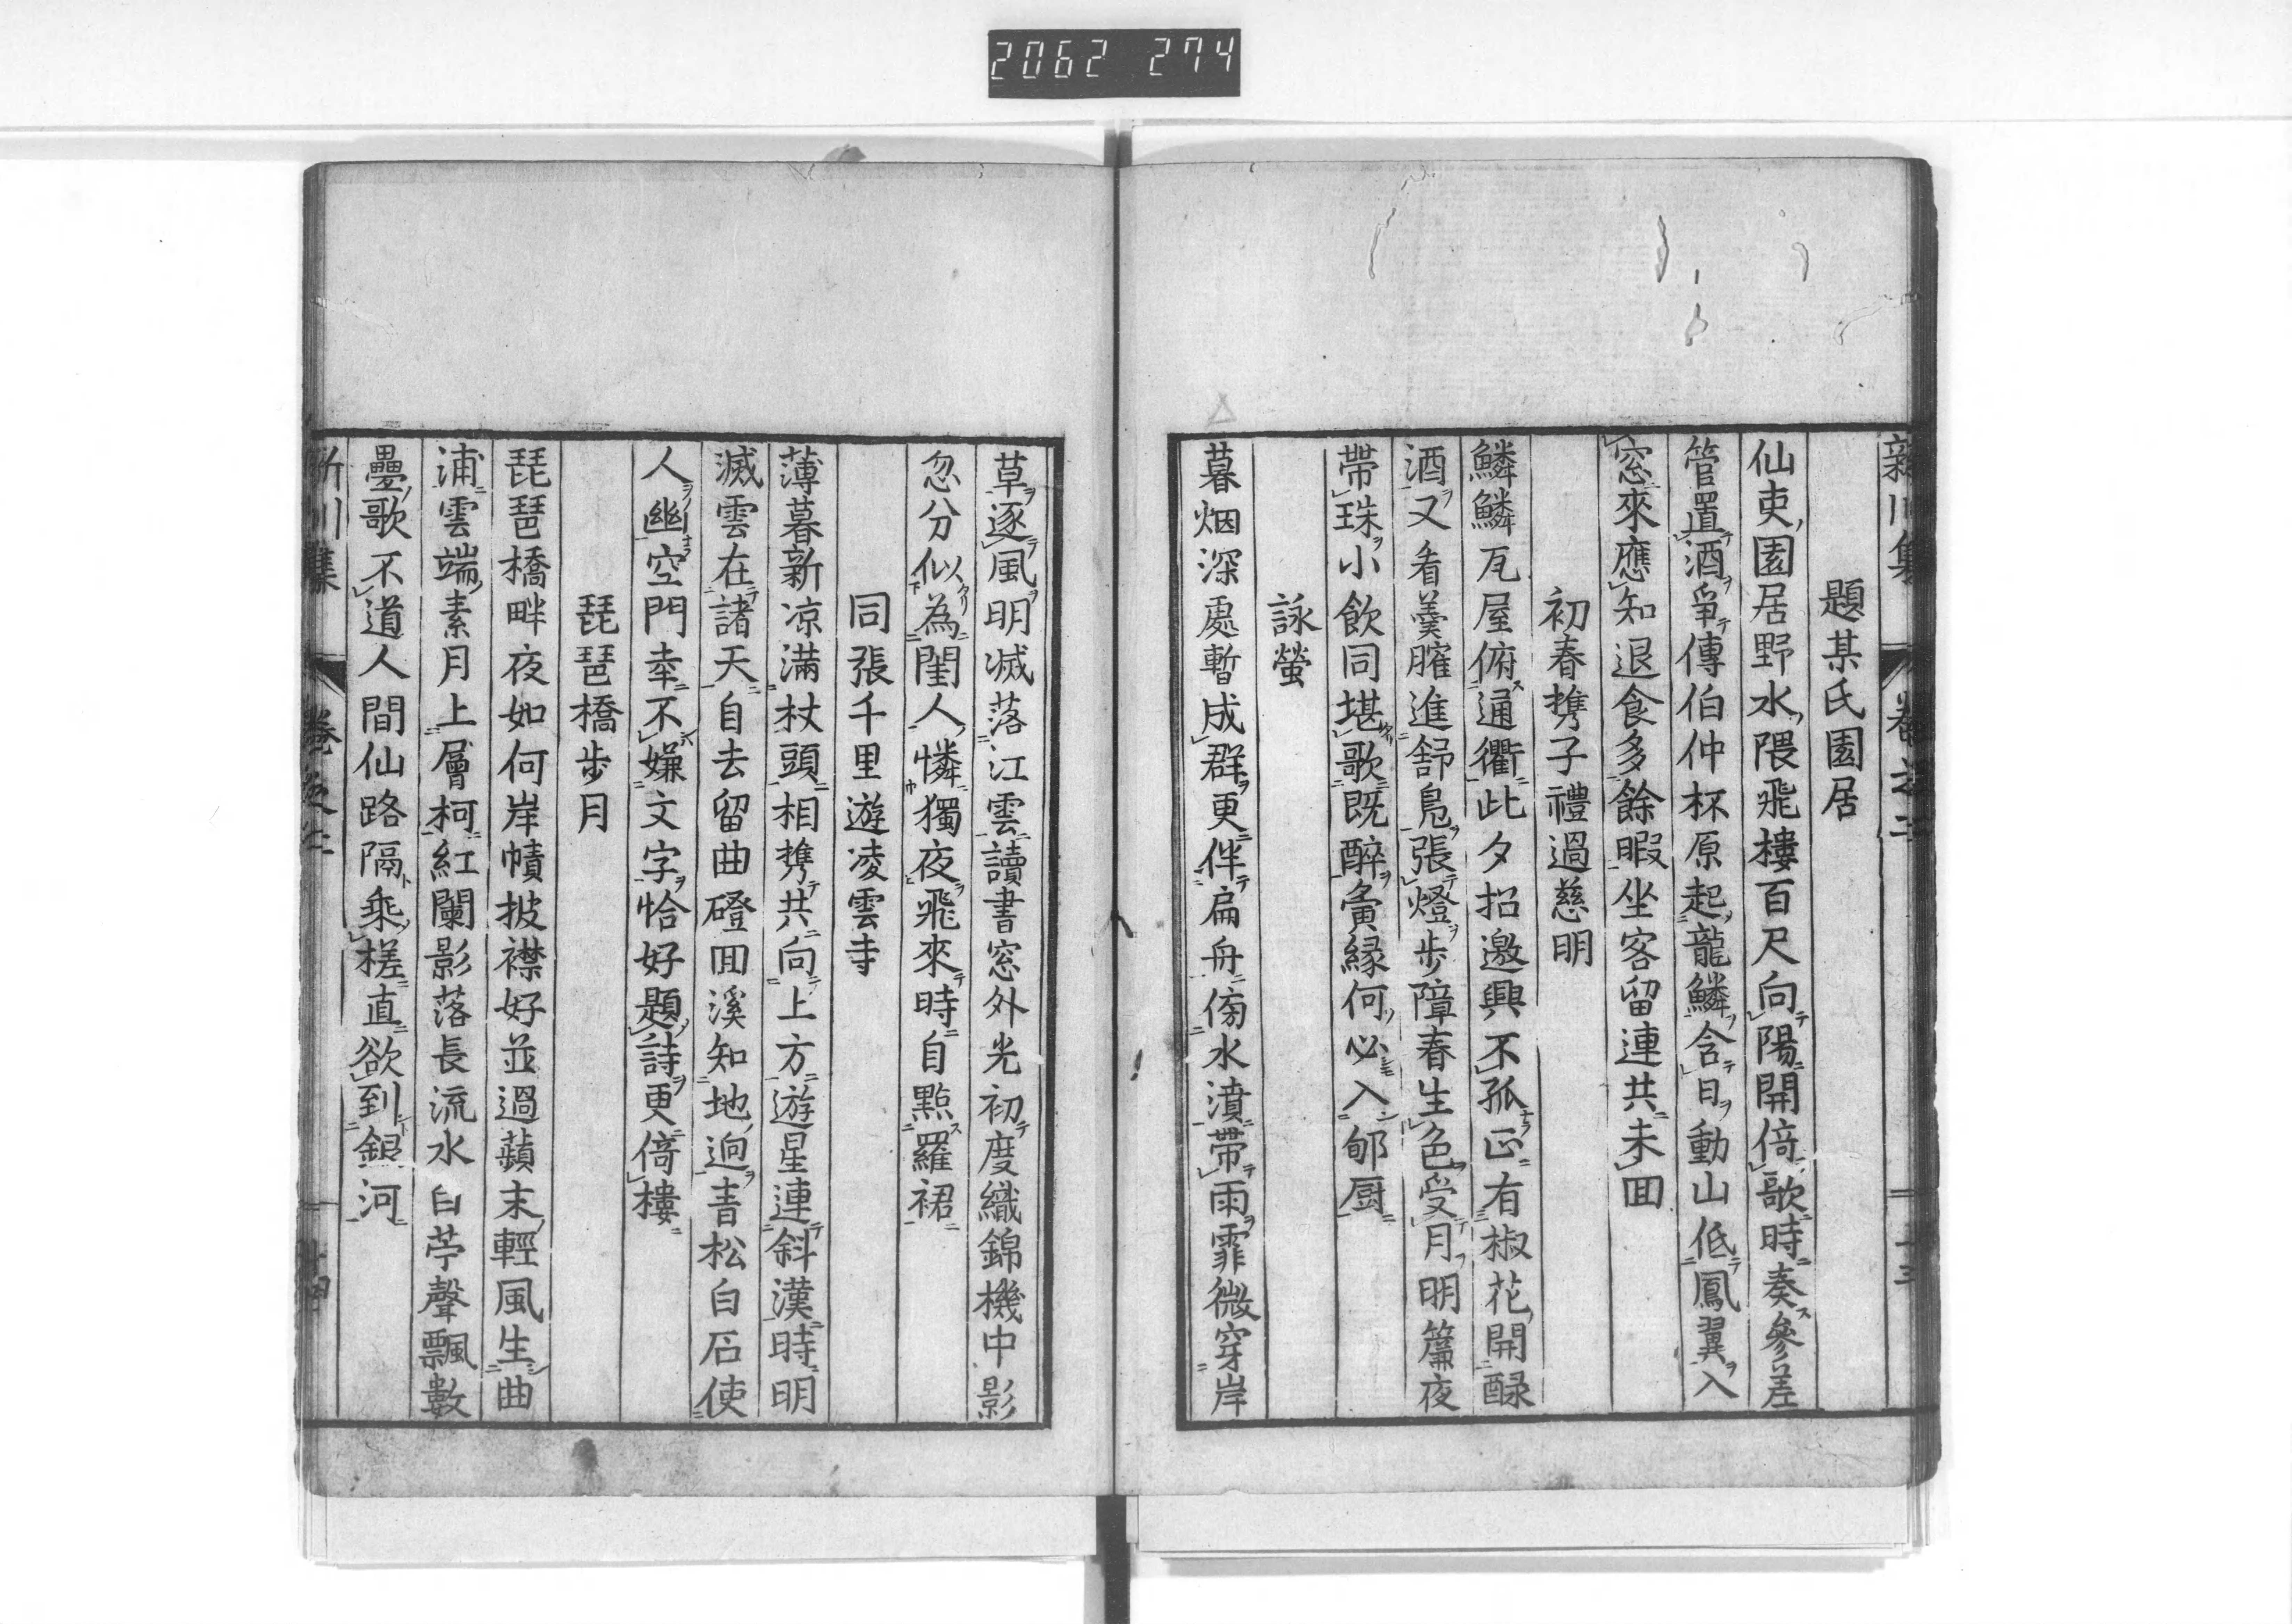 2062 274
題某氏園居
仙吏園居野水隈飛樓百尺向陽開倚歌時奏參差
管置酒爭傳伯仲杯原起龍鱗含日動山低鳳翼入
窓來應知退食多餘暇坐客留連共未回
初春携子禮過慈明
鱗鱗瓦屋俯通衢此夕招邀興不孤正有椒花開醁
酒又看羹臛進舒鳧張燈步障春生色受月明簾夜
帶珠小飲同堪歌既醉夤縁何必入郇厨
詠螢
暮烟深處暫成群更伴扁舟傍水濆帶雨霏微穿岸
草逐風明滅落江雲讀書窓外光初度織錦機中影
忽分似為閨人憐獨夜飛來時自點羅裙
同張千里遊凌雲寺
薄暮新凉滿杖頭相携共向上方遊星連斜漢時明
滅雲在諸天自去留曲磴回溪知地迥青松白石使
人幽空門幸不嫌文字恰好題詩更倚樓
琵琶橋步月
琵琶橋畔夜如何岸幘披襟好並過蘋末輕風生曲
浦雲端素月上層柯紅闌影落長流水白苧聲飄數
疊歌不道人間仙路隔乘槎直欲到銀河